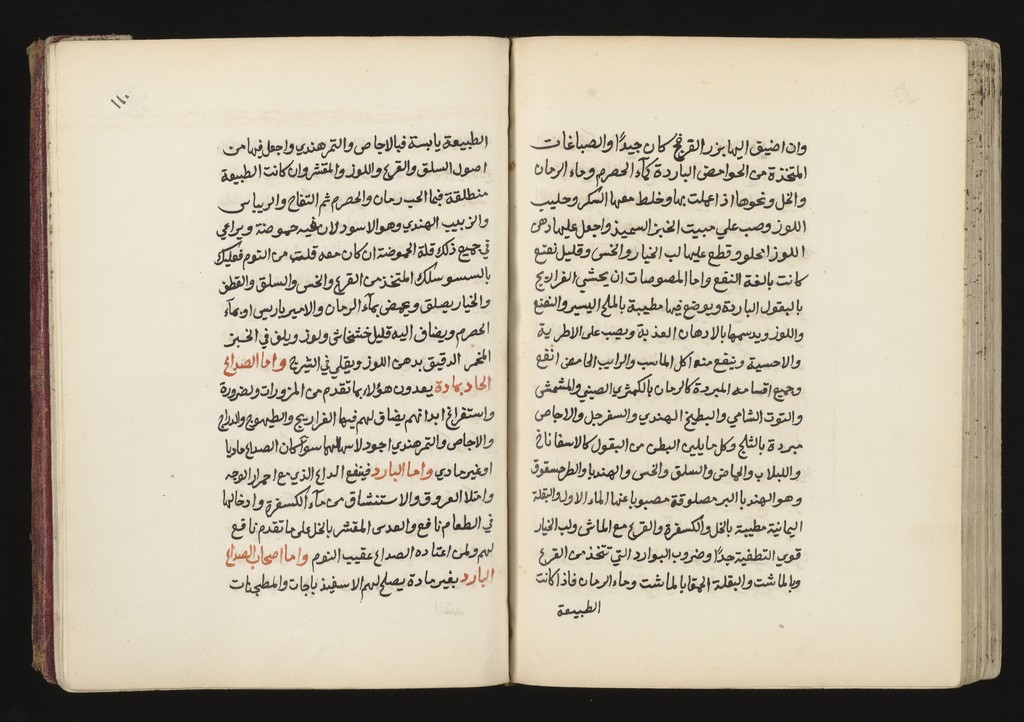 وان اضيق اليها بزر القرفخ كان جيدًا والصباغات
المتخذة من الحوامض الباردة كمآء الحصرم وماء الرمان
والخل ونحوها اذا عملت بها وخلط معها السكر وحليب
اللوز وصب على مبيت الخبز السميذ واجعل عليها دهن
اللوز الحلو وقطع عليها لب الخيار والخس وقليل نعنع
كانت بالغة النفع واما المصوصات ان يحشي الفراريج
بالبقول الباردة ويوضع فيها مطيبة بالملح اليسير والنعنع
واللوز ويدسمها بالادهان العذبة ويصب على الاطرية
والاحسية وينفع منه اكل الماست والرايب الحامض انفع
وجميع اقسامه المبردة كالرمان بالكمثرى الصيني والمشمشى
والتوت الشامي والبطيخ الهندي والسفرجل والاجاص
مبردة بالثلج وكل ما يلين البطن من البقول كالاسفاناخ
واللبلاب والحماض والسلق والخس والهندبا والطرحسقوق
وهو الهندبا البر مصلوقة مصبوبا عنها الماء الاول والبقلة
اليمانية مطيبة بالخل والكسفرة والقرع مع الماش ولب الخيار
قوى التطفية جدًا وضروب البوارد التي تتخذ من القرع
وبالماشت والبقلة الحمقا بالماشت وماء الرمان فاذا كانت
الطبيعة
١١٠
الطبيعة يابسة فبالاجاص والتمر هندي واجعل فيها من
اصول السلق والقرع واللوز والمقشر وان كانت الطبيعة
منطلقة فبما الحب رمان والحصرم ثم التفاح والريباس
والزبيب الهندي وهو الاسود لان فيه حموضة ويراعي
في جميع ذلك قلة الحموضة ان كان معه قلة من النوم فعليك
بالسسوسلك المتخذ من القرع والخس والسلق والقطف
والخيار يصلق ويحمض بمآء الرمان والاميرباريس او بمآء
الحصرم ويضاف اليه قليل خشخاش ولوز ويلق في الخبز
المخمر الدقيق بدهن اللوز ويقلى في الشيرج واما الصداع
الحاد بمادة يعدون هؤلاء بما تقدم من المزورات ولضرورة
واستفراغ ابدانهم يضاف لهم فيها الفراريج والطيهوج والدراج
والاجاص والتمر هندي اجود لاسهالها سوآ كان الصداع ماديا
او غير مادي واما البارد فينفع الداع الذي مع احمرار الوجه
وامتلا العروق والاستنشاق من مآء الكسفرة وادخالها
في الطعام نافع والعدس المقشر بالخل على ما تقدم نافع
لهم ولمن اعتاده الصداع عقيب النوم واما اصحاب الصداع
البارد بغير مادة يصلح لهم الاسفيذباجات والمطجنات